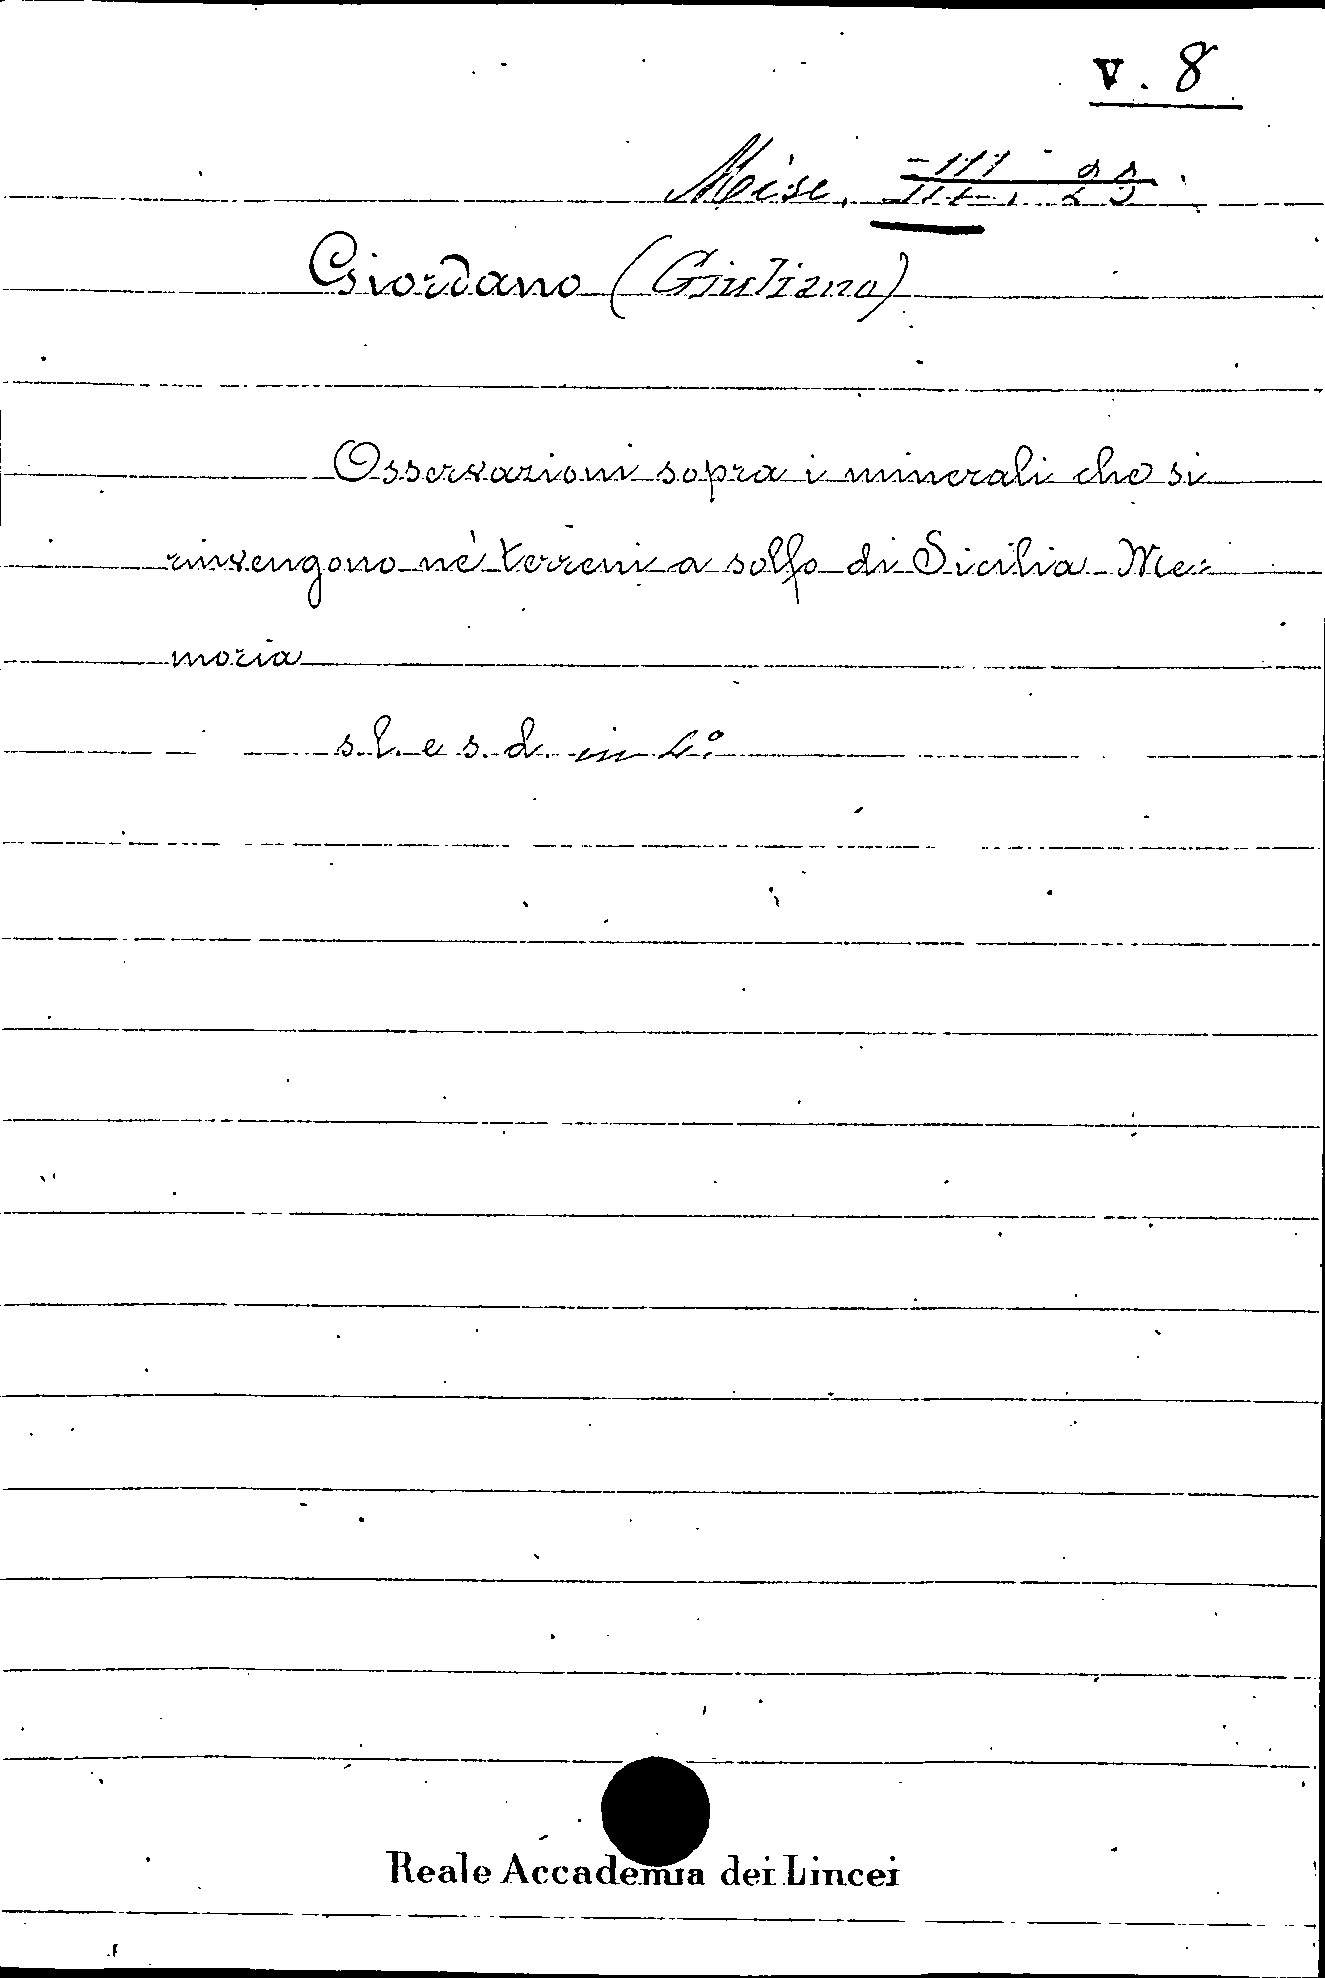 V. 8
Misc.
Giordano (Giuliano)
Osservazioni sopra i minerali che si
rinvengono ne' terreni a solfo di Sicilia Me=
moria
s. l. e s. d. in 4.º
Reale Accademia dei Lincei